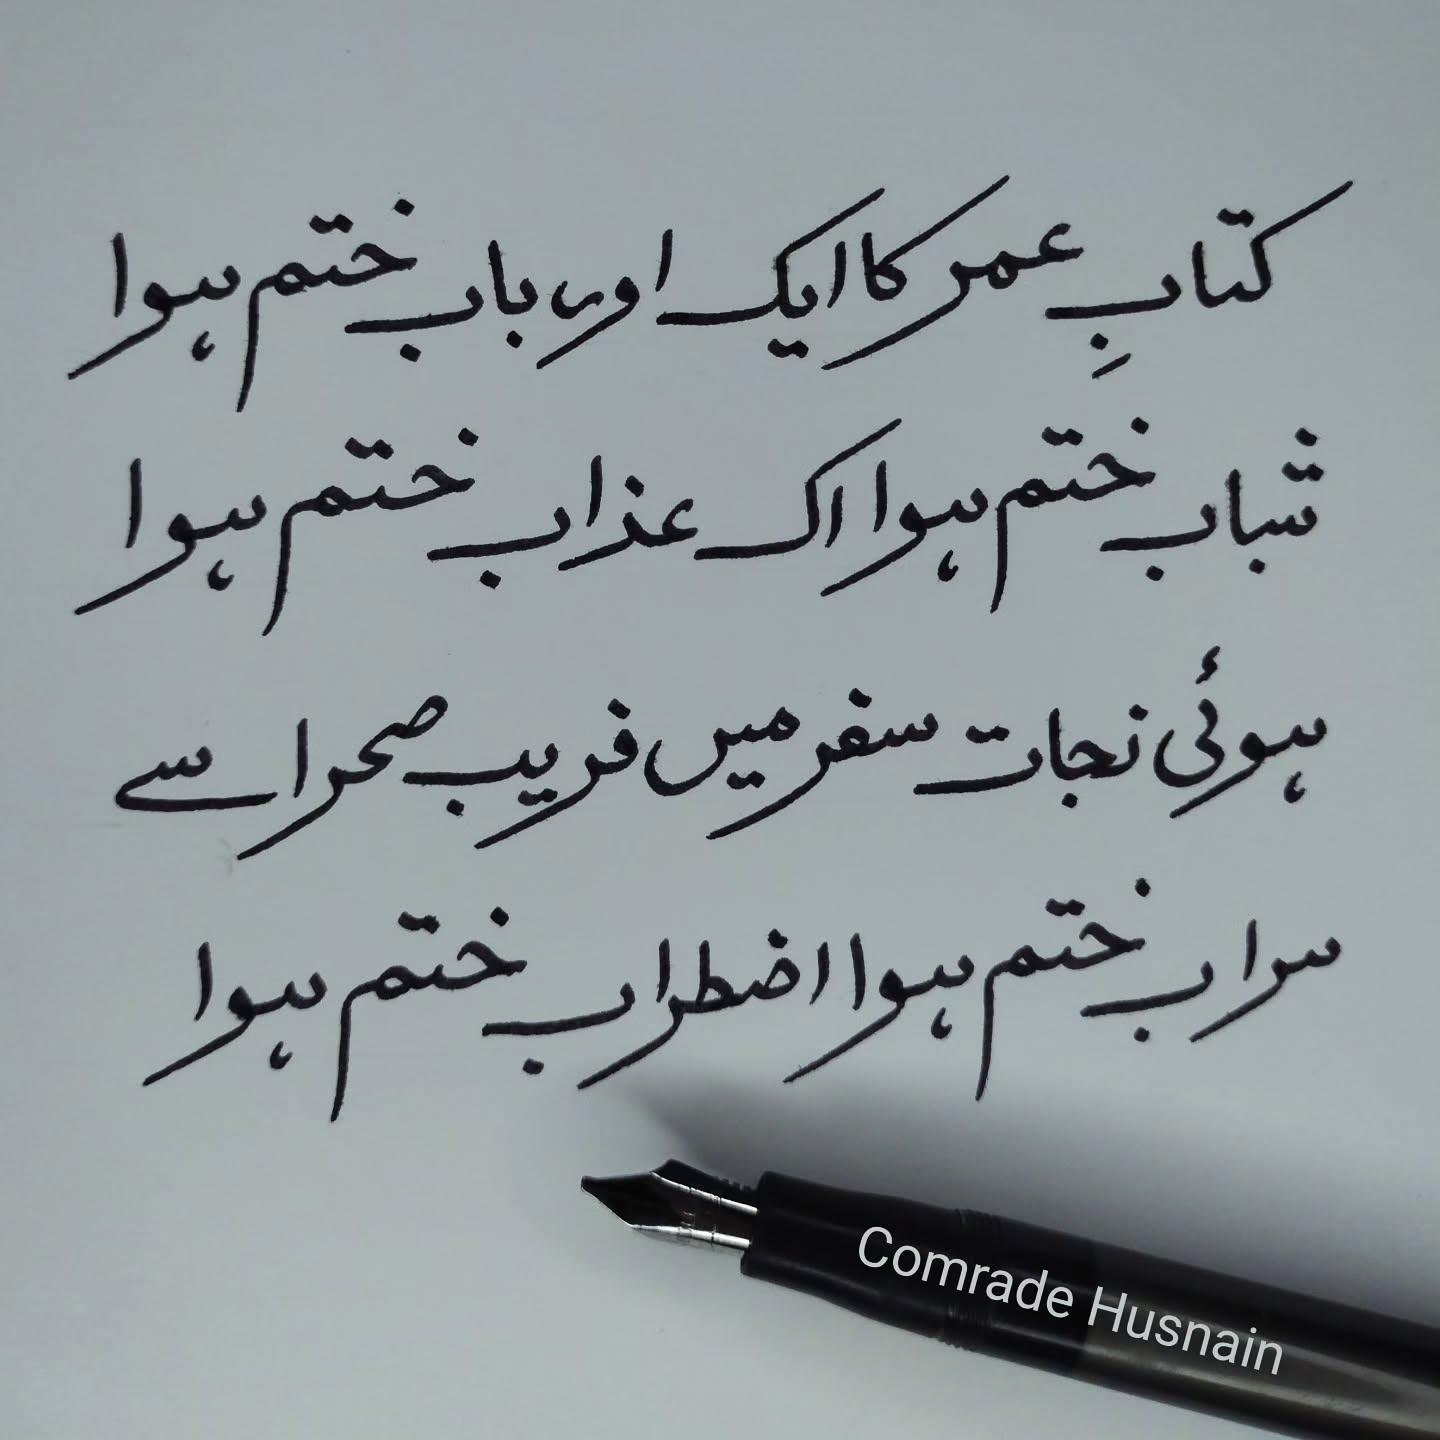 کتابِ عمر کا ایک اور باب ختم ہوا
شباب ختم ہوا اک عذاب ختم ہوا
ہوئی نجات سفر میں فریب صحرا سے
سراب ختم ہوا اضطراب ختم ہوا
Comrade Husnain